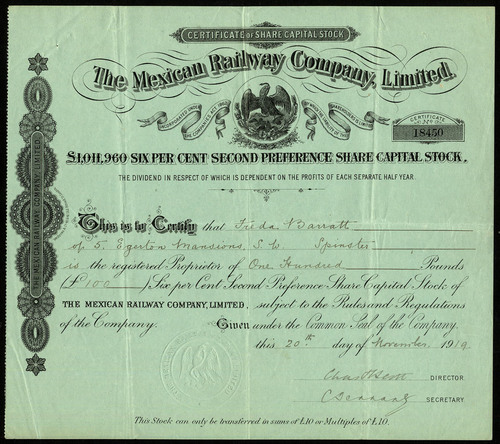 CERTIFICATE OF SHARE CAPITAL STOCK
The Mexican Railway Company, Limited.
CERTIFICATE
No
18450
£1,011,960 SIX PER CENT SECOND PREFERENCE SHARE CAPITAL STOCK.
THE DIVIDEND IN RESPECT OF WHICH IS DEPENDENT ON THE PROFITS OF EACH SEPARATE HALF YEAR.
THE MEXICAN RAILWAY COMPANY, LIMITED.
This is to Certify that Freda Barratt
of 5. Egerton Mansions, S.W. Spinster
is the registered Proprietor of One Hundred Pounds
(£100) Six per Cent Second Preference Share Capital Stock of
THE MEXICAN RAILWAY COMPANY, LIMITED, subject to the Rules and Regulations
of the Company. Given under the Common Seal of the Company.
this 20th day of November 1919
DIRECTOR
SECRETARY
This Stock can only be transferred in sums of £10 or Multiples of £10.